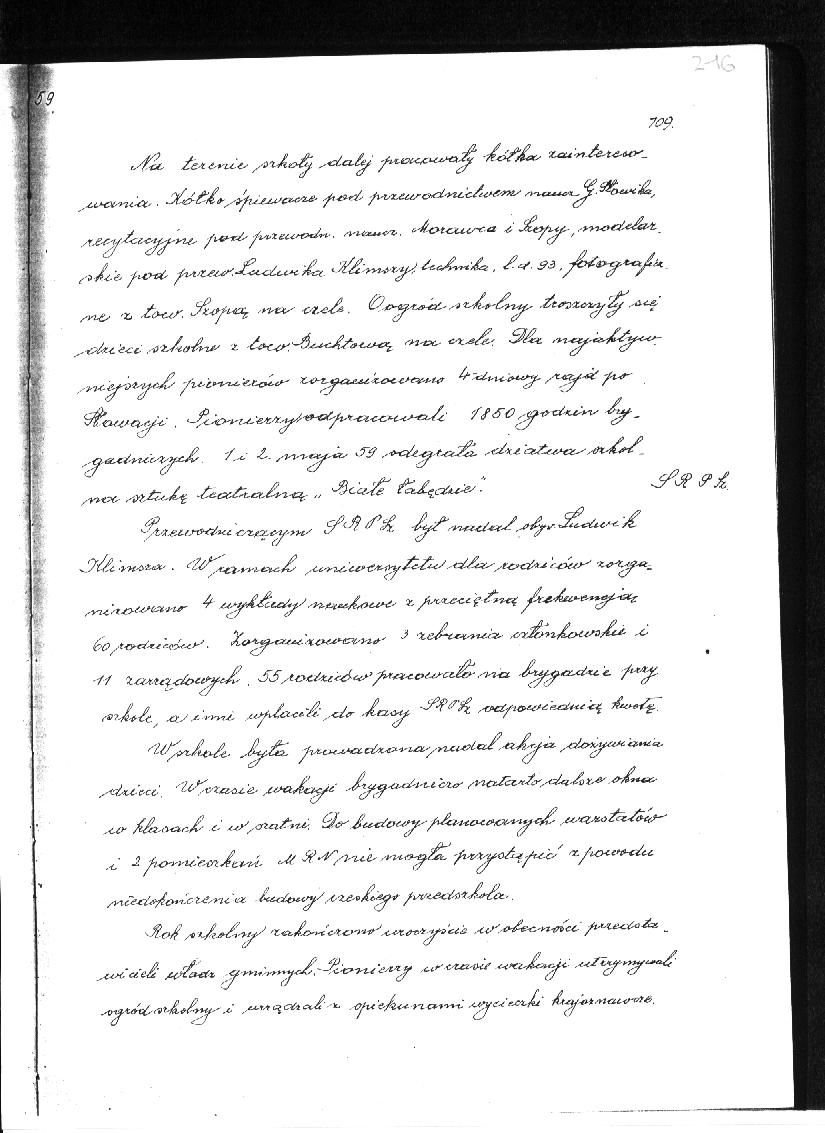 216
59
109.
Na terenie szkoły dalej pracowały kółka zaintereso-
wania. Kółko śpiewacze pod przewodnictwem naucz. G. Słowika,
recytacyjne pod przewodn. naucz. Morawca i Szopy, modelar-
skie pod przew. Ludwika Klimszy, technika, l.d. 93, fotograficz-
ne z tow. Szopą na czele. O ogród szkolny troszczyły się
dzieci szkolne z tow. Buchtową na czele. Dla najaktyw-
niejszych pionierów zorganizowano 4-dniowy rajd po
Słowacji. Pionierzy odpracowali 1850 godzin bry-
gadniczych. 1 i 2. maja 59 odegrała dziatwa szkol-
na sztukę teatralną „Białe łabędzie".
S R P Sz.
Przewodniczącym S R P Sz był nadal obyw. Ludwik
Klimsza. W ramach uniwersytetu dla rodziców zorga-
nizowano 4 wykłady naukowe z przeciętną frekwencją
60 rodziców. Zorganizowano 3 zebrania członkowskie i
11 zarządowych. 55 rodziców pracowało na brygadzie przy
szkole, a inni wpłacili do kasy SRPSz odpowiednią kwotę.
W szkole była prowadzona nadal akcja dożywiania
dzieci. W czasie wakacji brygadniczo natarto dalsze okna
w klasach i w szatni. Do budowy planowanych warsztatów
i 2 pomieszkań M R N nie mogła przystąpić z powodu
niedokończenia budowy czeskiego przedszkola.
Rok szkolny zakończono uroczyście w obecności przedsta-
wicieli władz gminnych. Pionierzy w czasie wakacji utrzymywali
ogród szkolny i urządzali z opiekunami wycieczki krajoznawcze.